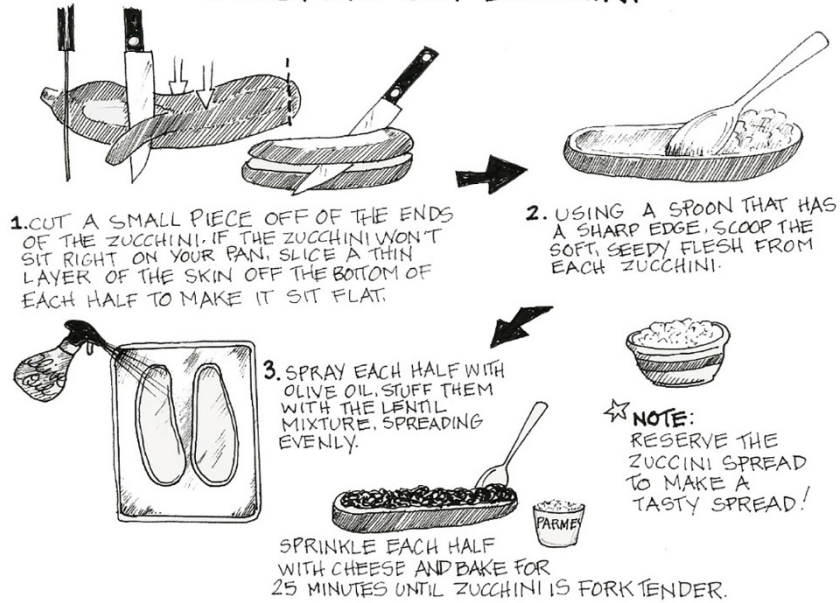 1. CUT A SMALL PIECE OFF OF THE ENDS
OF THE ZUCCHINI. IF THE ZUCCHINI WON'T
SIT RIGHT ON YOUR PAN, SLICE A THIN
LAYER OF THE SKIN OFF THE BOTTOM OF
EACH HALF TO MAKE IT SIT FLAT.
2. USING A SPOON THAT HAS
A SHARP EDGE, SCOOP THE
SOFT, SEEDY FLESH FROM
EACH ZUCCHINI.
3. SPRAY EACH HALF WITH
OLIVE OIL. STUFF THEM
WITH THE LENTIL
MIXTURE, SPREADING
EVENLY.
NOTE:
RESERVE THE
ZUCCINI SPREAD
TO MAKE A
TASTY SPREAD!
PARME
SPRINKLE EACH HALF
WITH CHEESE AND BAKE FOR
25 MINUTES UNTIL ZUCCHINI IS FORK TENDER.